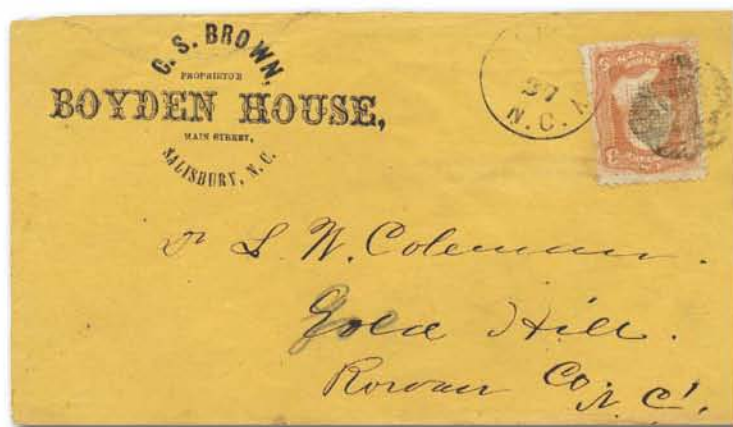 C. S. BROWN,
PROPRIETOR
BOYDEN HOUSE,
MAIN STREET,
SALISBURY, N. C.
27
N. C.
L. W. Coleman.
Gold Hill.
Rowan Co.
N. C.